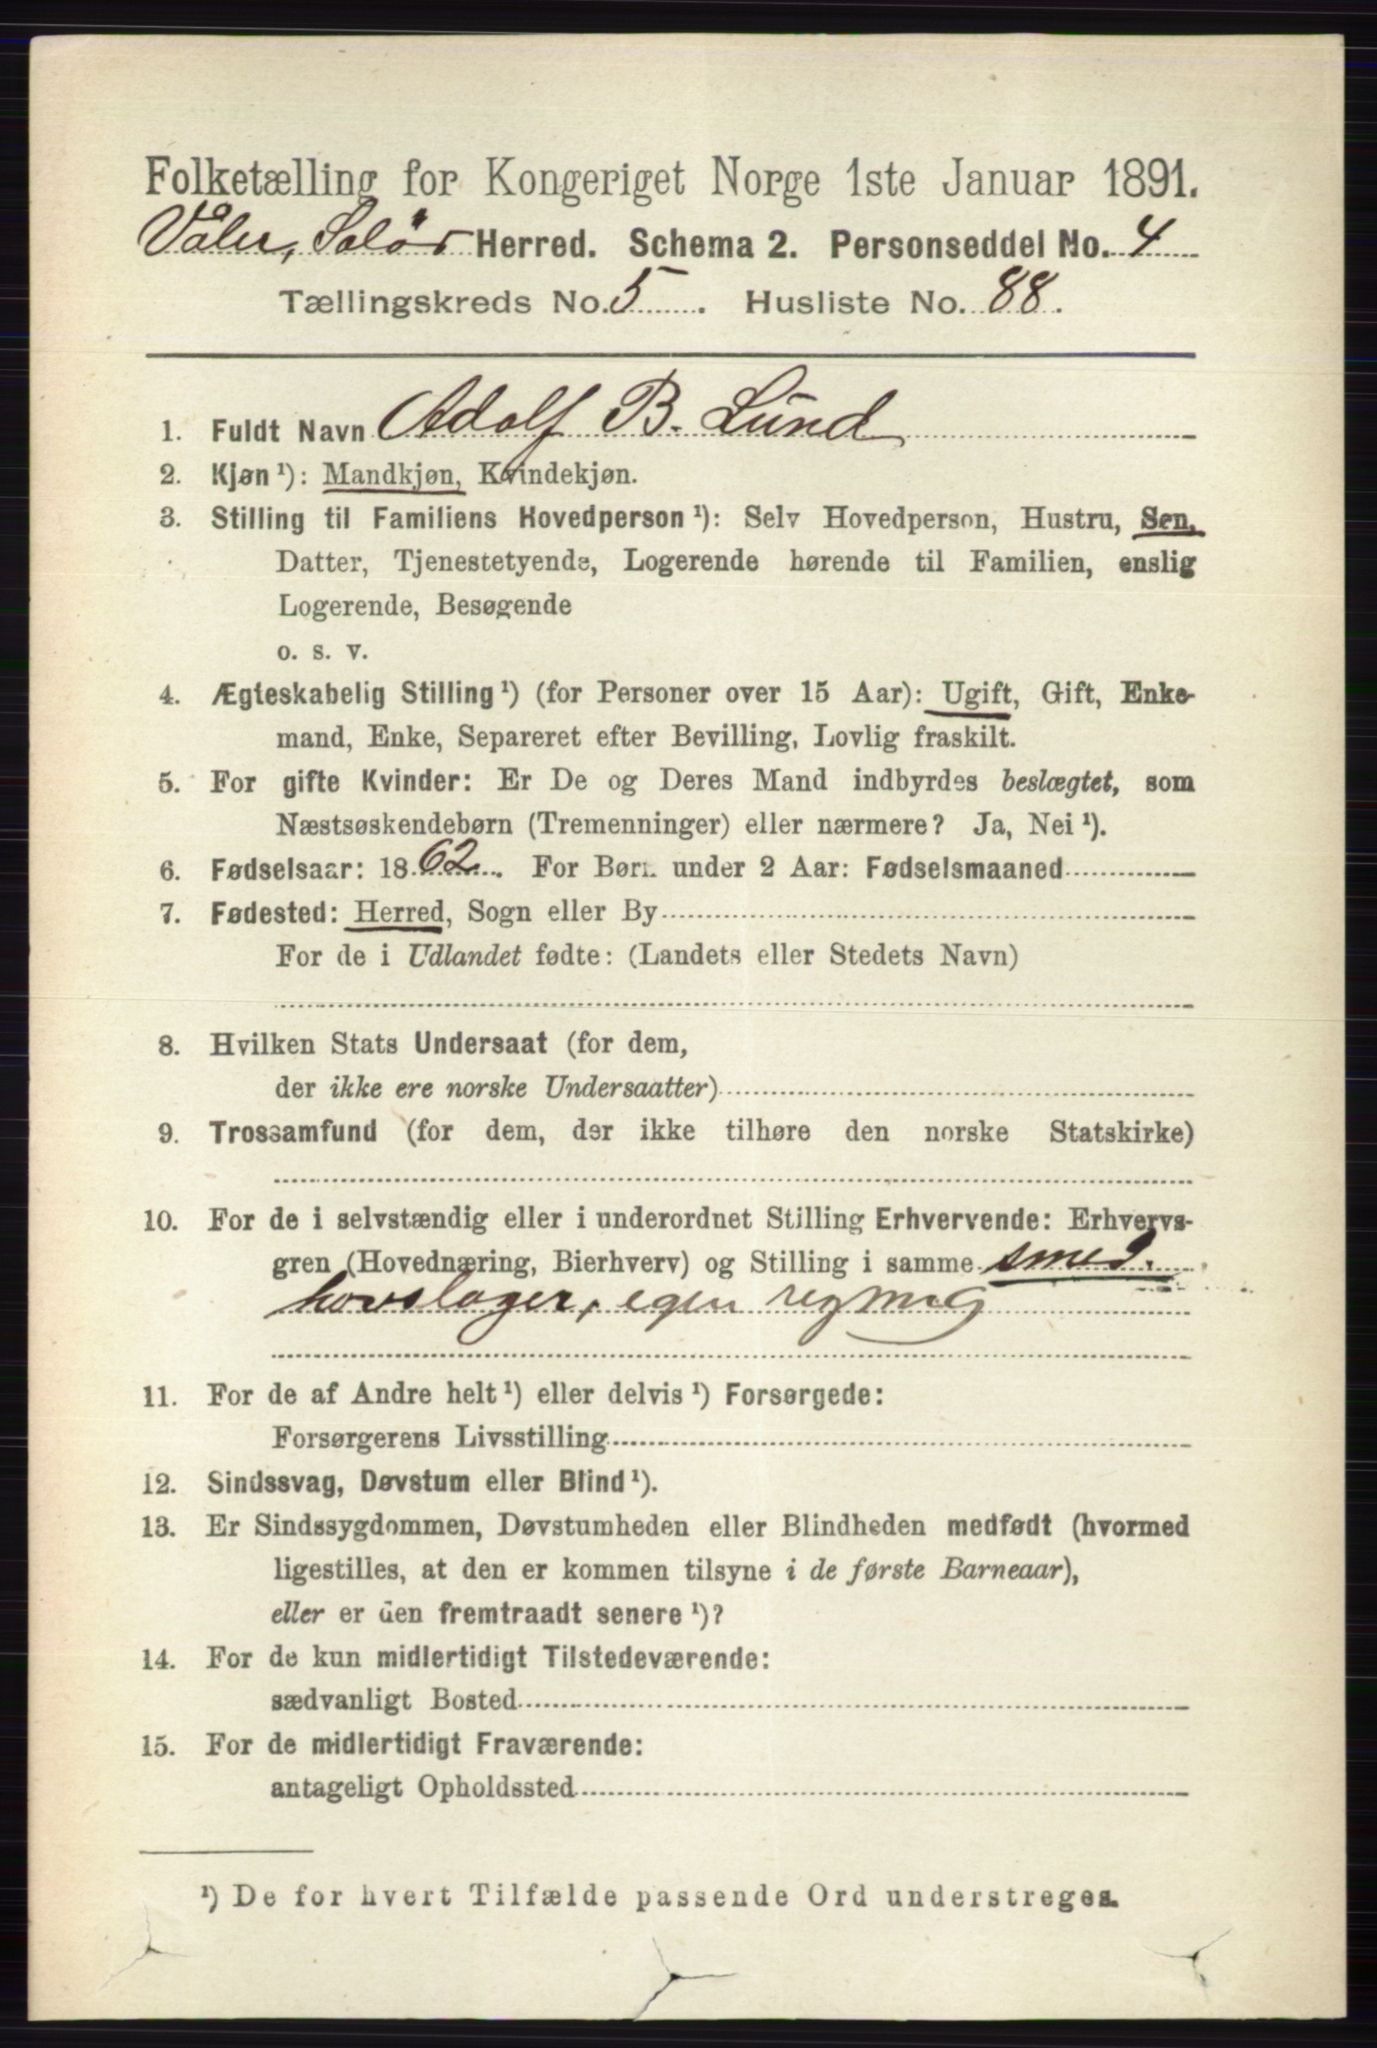 Folketælling for Kongeriget Norge 1ste Januar 1891.
Våler, Solör Herred. Schema 2. Personseddel No. 4
Tællingskreds No. 5. Husliste No. 88.
1. Fuldt Navn Adolf B. Lund
2. Kjøn¹): Mandkjøn, Kvindekjøn.
3. Stilling til Familiens Hovedperson¹): Selv Hovedperson, Hustru, Søn,
Datter, Tjenestetyende, Logerende hørende til Familien, enslig
Logerende, Besøgende
o. s. v.
4. Ægteskabelig Stilling¹) (for Personer over 15 Aar): Ugift, Gift, Enke-
mand, Enke, Separeret efter Bevilling, Lovlig fraskilt.
5. For gifte Kvinder: Er De og Deres Mand indbyrdes beslægtet, som
Næstsøskendebørn (Tremenninger) eller nærmere? Ja, Nei¹).
6. Fødselsaar: 1862. For Børn under 2 Aar: Fødselsmaaned
7. Fødested: Herred, Sogn eller By
For de i Udlandet fødte: (Landets eller Stedets Navn)
8. Hvilken Stats Undersaat (for dem,
der ikke ere norske Undersaatter)
9. Trossamfund (for dem, der ikke tilhøre den norske Statskirke)
10. For de i selvstændig eller i underordnet Stilling Erhvervende: Erhvervs-
gren (Hovednæring, Bierhverv) og Stilling i samme smed.
hovslager, egen regning
11. For de af Andre helt¹) eller delvis¹) Forsørgede:
Forsørgerens Livsstilling
12. Sindssvag, Døvstum eller Blind¹).
13. Er Sindssygdommen, Døvstumheden eller Blindheden medfødt (hvormed
ligestilles, at den er kommen tilsyne i de første Barneaar),
eller er den fremtraadt senere¹)?
14. For de kun midlertidigt Tilstedeværende:
sædvanligt Bosted
15. For de midlertidigt Fraværende:
antageligt Opholdssted
¹) De for hvert Tilfælde passende Ord understreges.